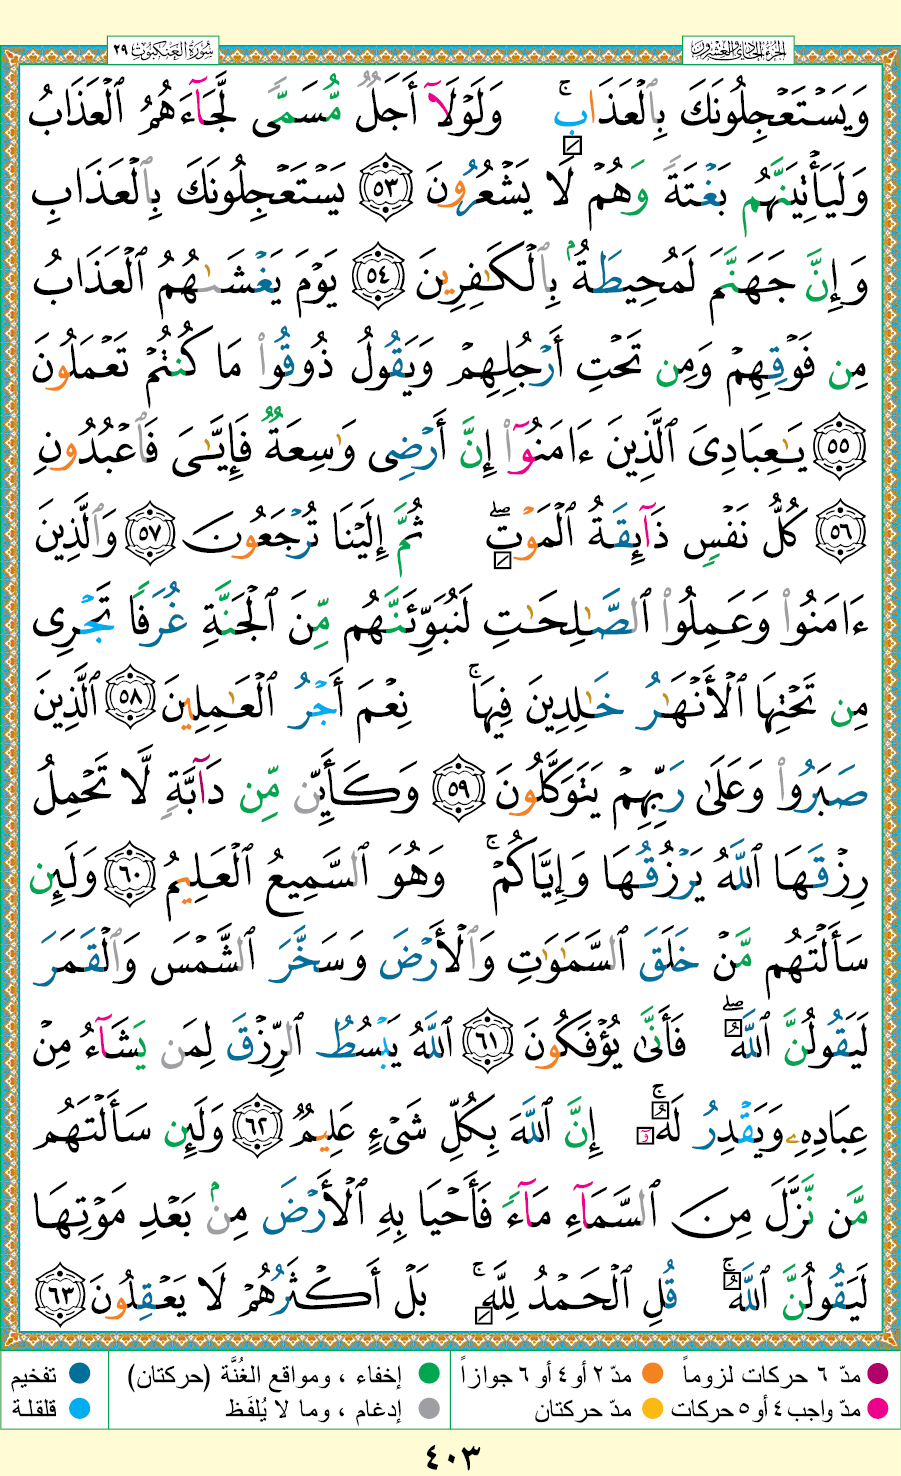 الجزء الحادي والعشرون
سورة العنكبوت ٢٩
وَيَسۡتَعۡجِلُونَكَ بِٱلۡعَذَابِۚ وَلَوۡلَآ أَجَلٞ مُّسَمّٗى لَّجَآءَهُمُ ٱلۡعَذَابُ
وَلَيَأۡتِيَنَّهُم بَغۡتَةٗ وَهُمۡ لَا يَشۡعُرُونَ ٥٣ يَسۡتَعۡجِلُونَكَ بِٱلۡعَذَابِ
وَإِنَّ جَهَنَّمَ لَمُحِيطَةُۢ بِٱلۡكَٰفِرِينَ ٥٤ يَوۡمَ يَغۡشَىٰهُمُ ٱلۡعَذَابُ
مِن فَوۡقِهِمۡ وَمِن تَحۡتِ أَرۡجُلِهِمۡ وَيَقُولُ ذُوقُواْ مَا كُنتُمۡ تَعۡمَلُونَ
٥٥ يَٰعِبَادِيَ ٱلَّذِينَ ءَامَنُوٓاْ إِنَّ أَرۡضِي وَٰسِعَةٞ فَإِيَّٰيَ فَٱعۡبُدُونِ
٥٦ كُلُّ نَفۡسٖ ذَآئِقَةُ ٱلۡمَوۡتِۖ ثُمَّ إِلَيۡنَا تُرۡجَعُونَ ٥٧ وَٱلَّذِينَ
ءَامَنُواْ وَعَمِلُواْ ٱلصَّٰلِحَٰتِ لَنُبَوِّئَنَّهُم مِّنَ ٱلۡجَنَّةِ غُرَفٗا تَجۡرِي
مِن تَحۡتِهَا ٱلۡأَنۡهَٰرُ خَٰلِدِينَ فِيهَاۚ نِعۡمَ أَجۡرُ ٱلۡعَٰمِلِينَ ٥٨ ٱلَّذِينَ
صَبَرُواْ وَعَلَىٰ رَبِّهِمۡ يَتَوَكَّلُونَ ٥٩ وَكَأَيِّن مِّن دَآبَّةٖ لَّا تَحۡمِلُ
رِزۡقَهَا ٱللَّهُ يَرۡزُقُهَا وَإِيَّاكُمۡۚ وَهُوَ ٱلسَّمِيعُ ٱلۡعَلِيمُ ٦٠ وَلَئِن
سَأَلۡتَهُم مَّنۡ خَلَقَ ٱلسَّمَٰوَٰتِ وَٱلۡأَرۡضَ وَسَخَّرَ ٱلشَّمۡسَ وَٱلۡقَمَرَ
لَيَقُولُنَّ ٱللَّهُۖ فَأَنَّىٰ يُؤۡفَكُونَ ٦١ ٱللَّهُ يَبۡسُطُ ٱلرِّزۡقَ لِمَن يَشَآءُ مِنۡ
عِبَادِهِۦ وَيَقۡدِرُ لَهُۥٓۚ إِنَّ ٱللَّهَ بِكُلِّ شَيۡءٍ عَلِيمٞ ٦٢ وَلَئِن سَأَلۡتَهُم
مَّن نَّزَّلَ مِنَ ٱلسَّمَآءِ مَآءٗ فَأَحۡيَا بِهِ ٱلۡأَرۡضَ مِنۢ بَعۡدِ مَوۡتِهَا
لَيَقُولُنَّ ٱللَّهُۚ قُلِ ٱلۡحَمۡدُ لِلَّهِۚ بَلۡ أَكۡثَرُهُمۡ لَا يَعۡقِلُونَ ٦٣
مدّ ٦ حركات لزوماً مدّ ٢ أو ٤ أو ٦ جوازاً إخفاء ، ومواقع الغُنَّة (حركتان) تفخيم
مدّ واجب ٤ أو ٥ حركات مدّ حركتان إدغام ، وما لا يُلفَظ قلقلة
٤٠٣